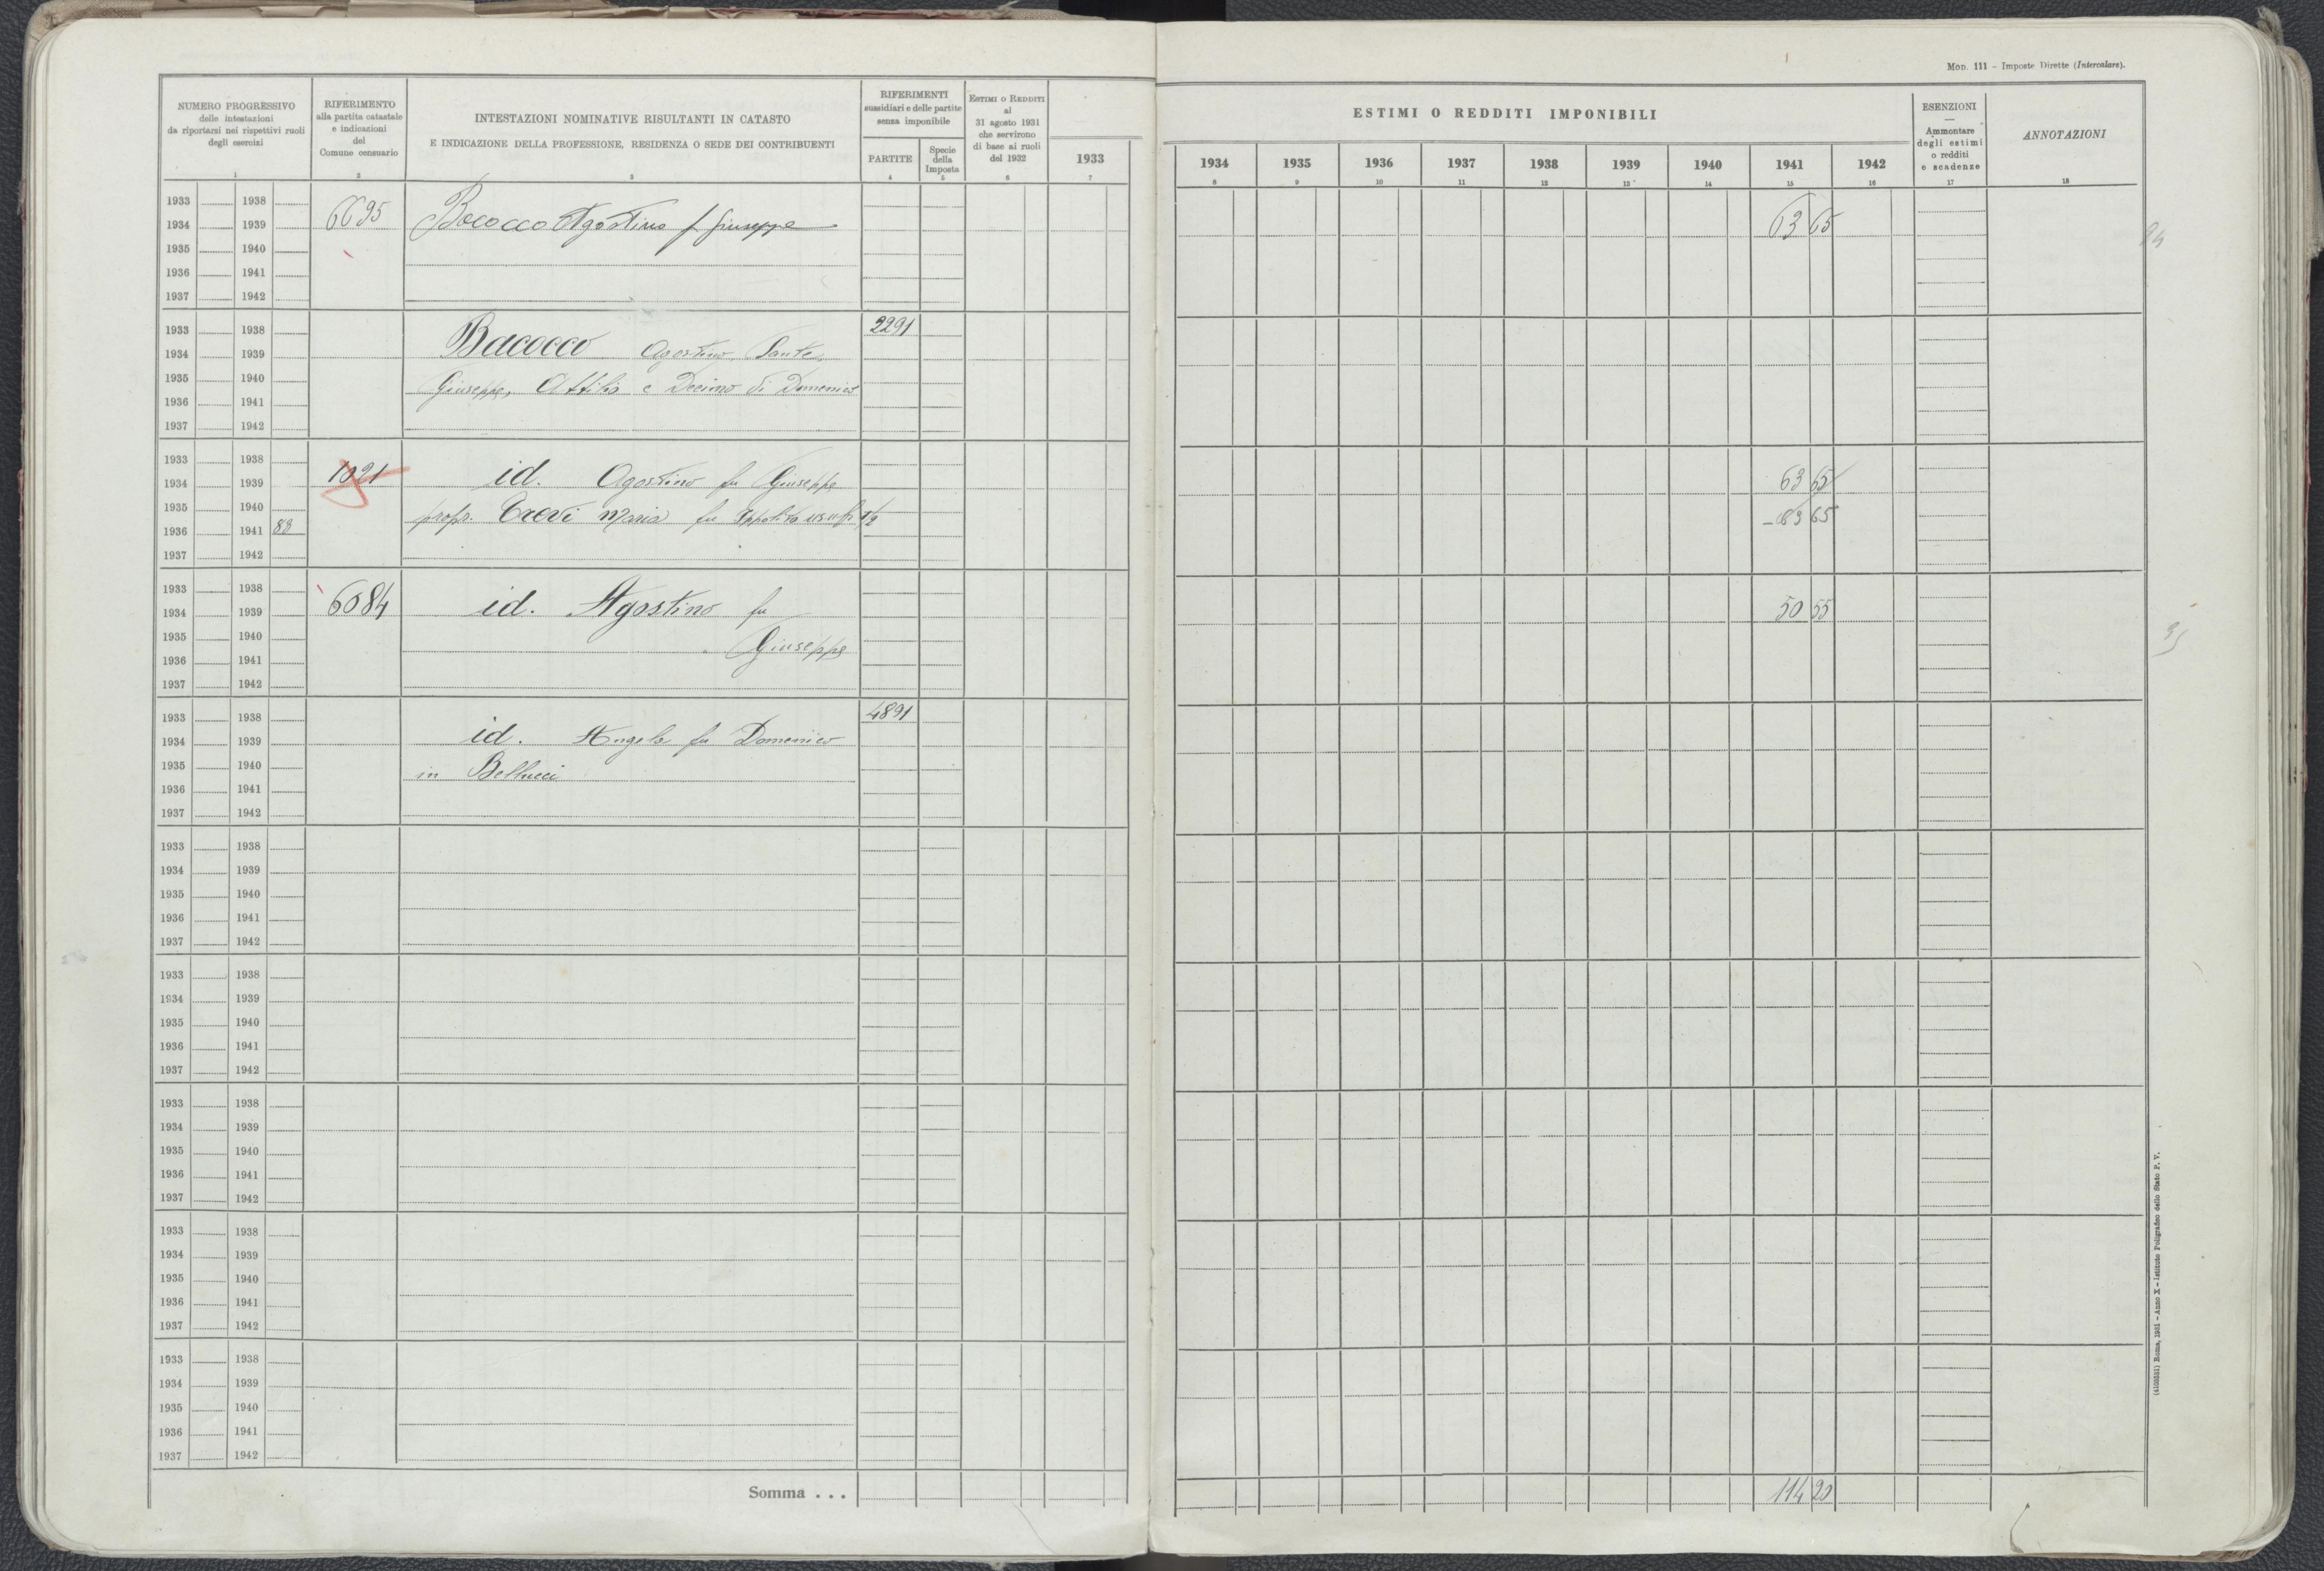 Mod. 111 – Imposte Dirette (Intercalare).
NUMERO PROGRESSIVO
delle intestazioni
da riportarsi nei rispettivi ruoli
degli esercizi
1
RIFERIMENTO
alla partita catastale
e indicazioni
del
Comune censuario
2
INTESTAZIONI NOMINATIVE RISULTANTI IN CATASTO
E INDICAZIONE DELLA PROFESSIONE, RESIDENZA O SEDE DEI CONTRIBUENTI
3
RIFERIMENTI
sussidiari e delle partite
senza imponibile
PARTITE
4
Specie
della
Imposta
5
Estimi o Redditi
al
31 agosto 1931
che servirono
di base ai ruoli
del 1932
6
1933
7
ESTIMI O REDDITI IMPONIBILI
1934 1935 1936 1937 1938 1939 1940 1941 1942
8 9 10 11 12 13 14 15 16
ESENZIONI
—
Ammontare
degli estimi
o redditi
e scadenze
17
ANNOTAZIONI
18
1933 1938
1934 1939 6695 Bococco Agostino f Giuseppe 63 65
1935 1940
1936 1941
1937 1942
1933 1938 2291
1934 1939 Bacocco Agostino, Sante,
1935 1940 Giuseppe, Attilio e Decimo di Domenico
1936 1941
1937 1942
1933 1938
1934 1939 1021 id. Agostino fu Giuseppe 63 65
1935 1940 propr. Crevi Maria fu Ippolito usufr 1/2 – 63 65
1936 1941 83
1937 1942
1933 1938
1934 1939 6084 id. Agostino fu 50 55
1935 1940 Giuseppe
1936 1941
1937 1942
1933 1938 4891
1934 1939 id. Angela fu Domenico
1935 1940 in Bellucci
1936 1941
1937 1942
1933 1938
1934 1939
1935 1940
1936 1941
1937 1942
1933 1938
1934 1939
1935 1940
1936 1941
1937 1942
1933 1938
1934 1939
1935 1940
1936 1941
1937 1942
1933 1938
1934 1939
1935 1940
1936 1941
1937 1942
1933 1938
1934 1939
1935 1940
1936 1941
1937 1942
Somma . . . 114 20
Roma, 1931 – Anno X – Istituto Poligrafico dello Stato P. V.